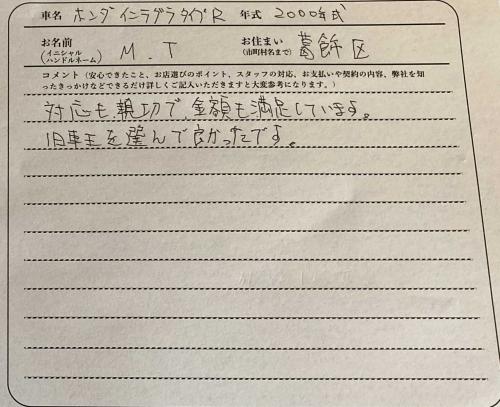 車名 ホンダインテグラタイプR 年式 2000年式
お名前 (イニシャル ハンドルネーム) M.T お住まい (市町村名まで) 葛飾区
コメント(安心できたこと、お店選びのポイント、スタッフの対応、お支払いや契約の内容、弊社を知
ったきっかけなどできるだけ詳しくご記入いただきますと大変参考になります。)
対応も親切で、金額も満足しています。
旧車王を選んで良かったです。